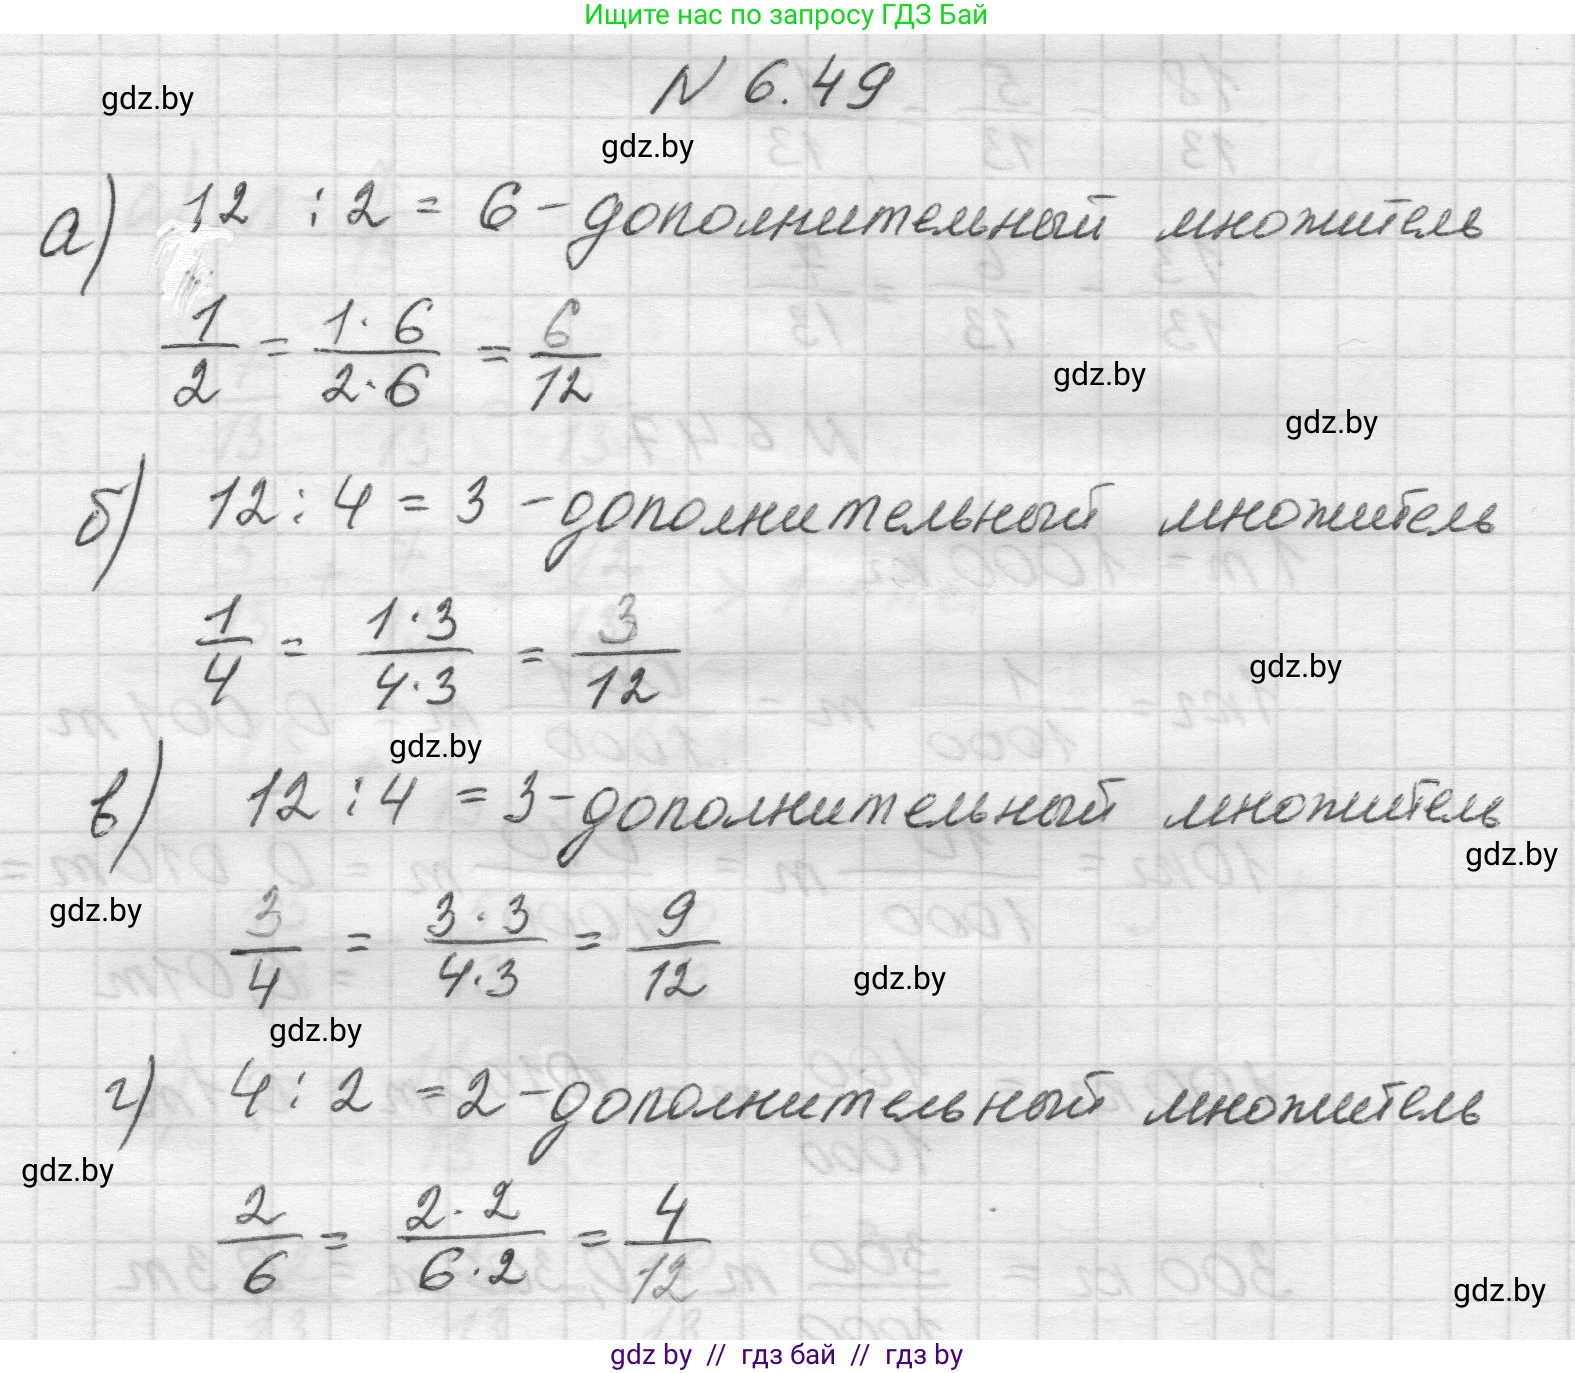 Ищите нас по запросу ГДЗ Бай
N 6.49
gdz.by
gdz.by
а) 12 : 2 = 6 - дополнительный множитель
1/2 = 1·6/2·6 = 6/12
gdz.by
gdz.by
б) 12 : 4 = 3 - дополнительный множитель
1/4 = 1·3/4·3 = 3/12
gdz.by
gdz.by
в) 12 : 4 = 3 - дополнительный множитель
gdz.by
gdz.by
3/4 = 3·3/4·3 = 9/12
gdz.by
gdz.by
г) 4 : 2 = 2 - дополнительный множитель
gdz.by
2/6 = 2·2/6·2 = 4/12
gdz.by
gdz by // гдз бай // гдз by